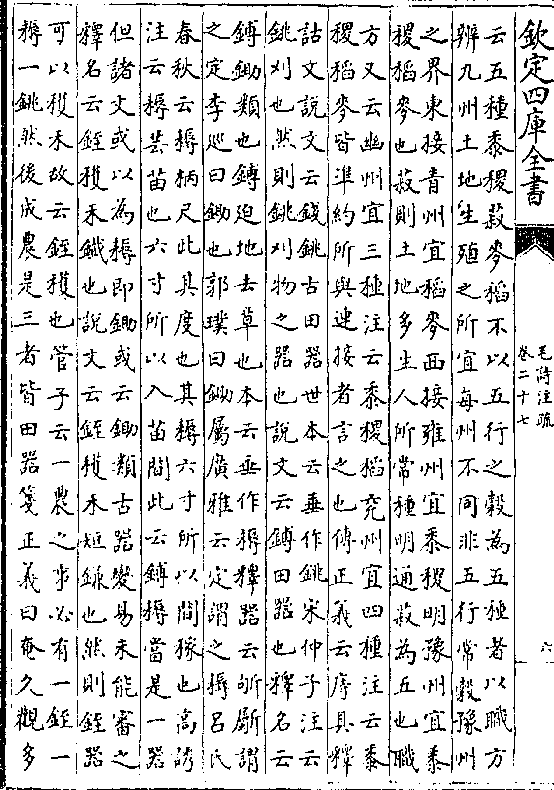 欽定四庫全書
毛詩注疏
卷二十七
六
云五種黍稷菽麥稻不以五行之穀為五種者以職方
辨九州土地生殖之所宜每州不同非五行常穀豫州
之界東接青州宜稻麥西接雍州宜黍稷明豫州宜黍
稷稻麥也菽則土地多生人所常種明通菽為五也職
方又云幽州宜三種注云黍稷稻兖州宜四種注云黍
稷稻麥皆準約所與連接者言之也傳正義云庤具釋
詁文說文云錢銚古田器世本云垂作銚宋仲子注云
銚刈也然則銚刈物之器也說文云鎛田器也釋名云
鎛鋤類也鎛迫地去草也本云垂作耨釋器云斪斸謂
之定李廵曰鋤也郭璞曰鋤屬廣雅云定謂之耨吕氏
春秋云耨柄尺此其度也其耨六寸所以間稼也高誘
注云耨芸苗也六寸所以入苗間此云鎛耨當是一器
但諸文或以為耨即鋤或云鋤類古器變易未能審之
釋名云銍穫禾鐵也說文云銍穫禾短鎌也然則銍器
可以穫禾故云銍穫也管子云一農之事必有一銍一
耨一銚然後成農是三者皆田器箋正義曰奄久觀多